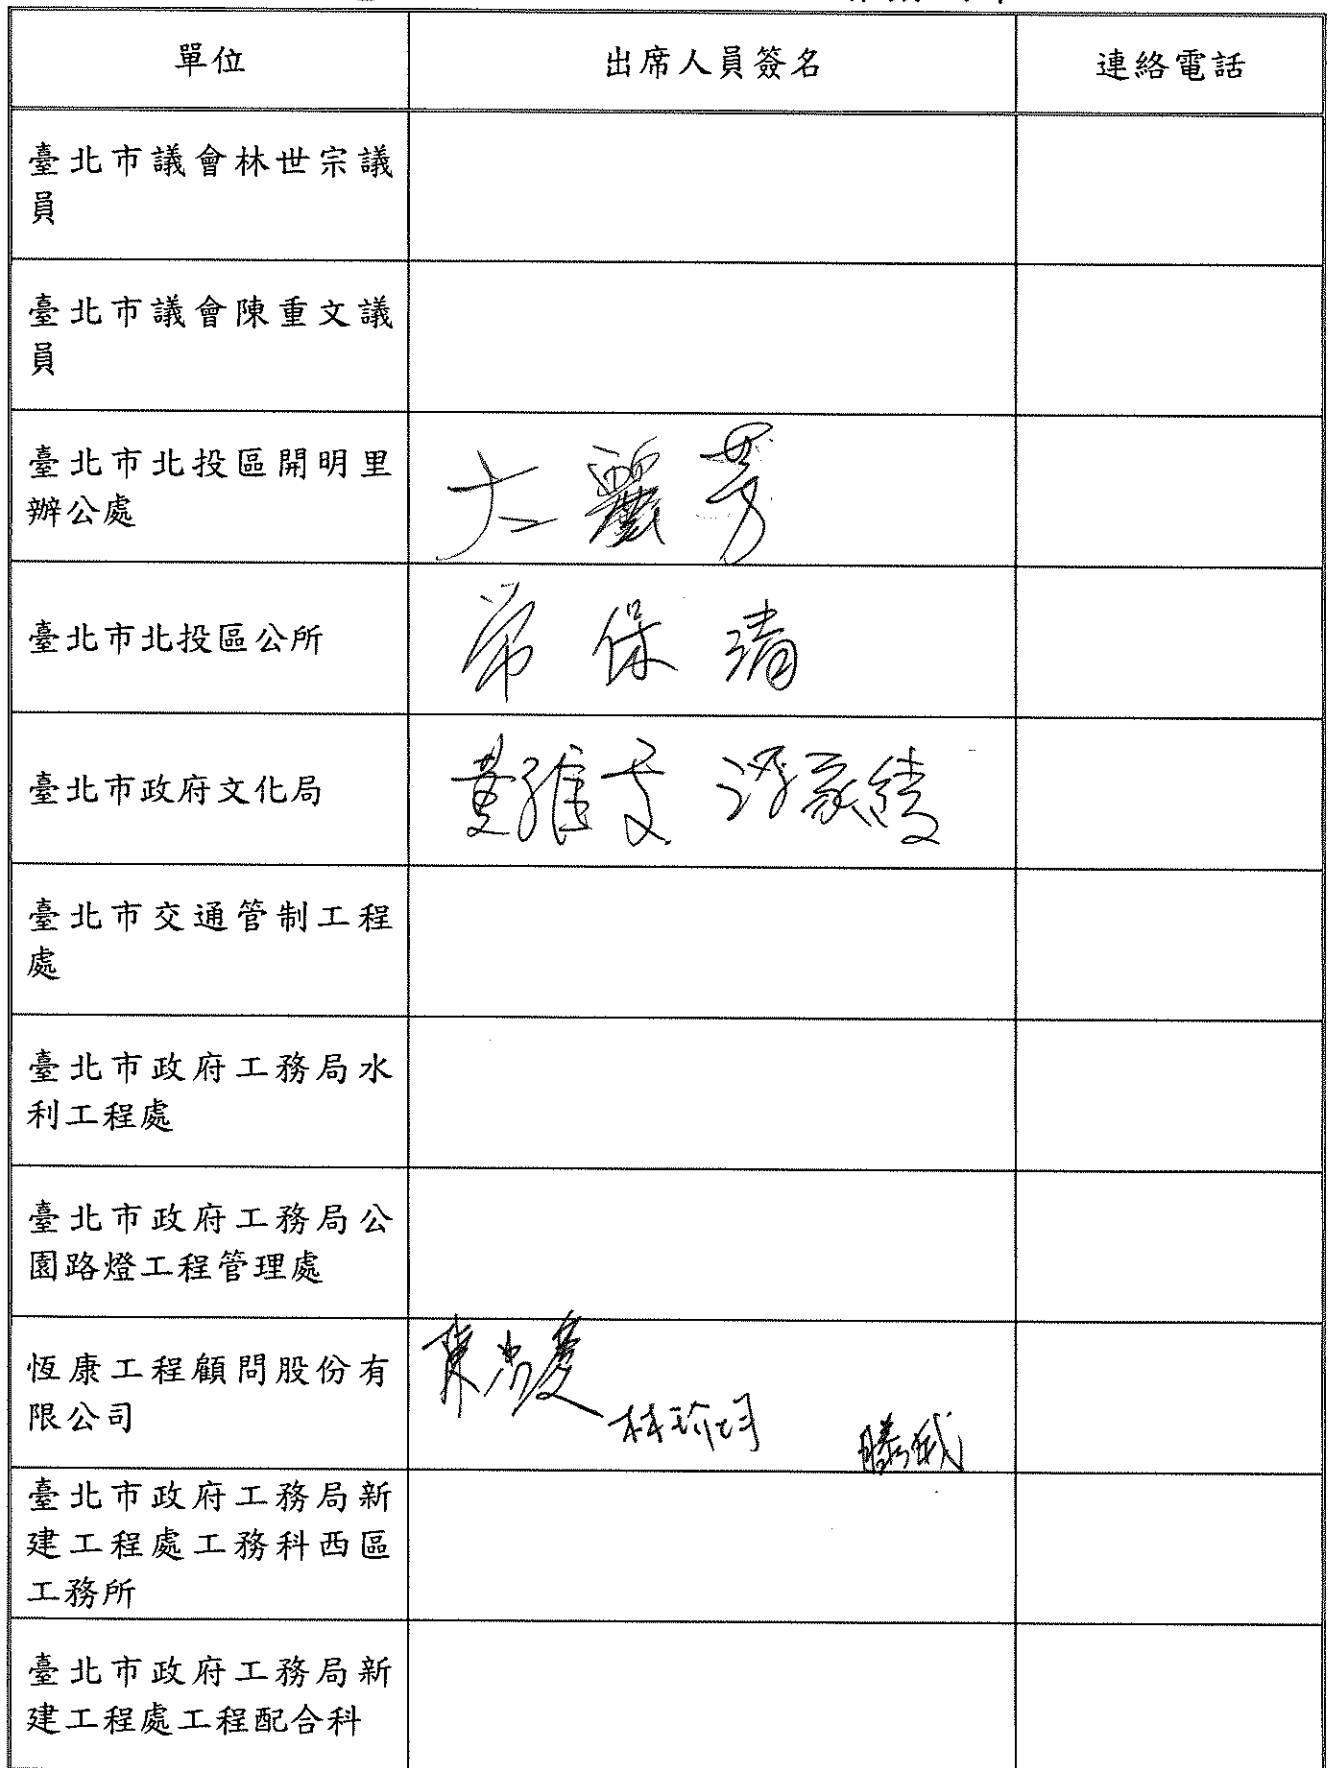 單位 出席人員簽名 連絡電話
臺北市議會林世宗議
員
臺北市議會陳重文議
員
臺北市北投區開明里
辦公處
麗芳
臺北市北投區公所
常保清
臺北市政府文化局
黃雅雯 游家綾
臺北市交通管制工程
處
臺北市政府工務局水
利工程處
臺北市政府工務局公
園路燈工程管理處
恆康工程顧問股份有
限公司
林瑜
臺北市政府工務局新
建工程處工務科西區
工務所
臺北市政府工務局新
建工程處工程配合科